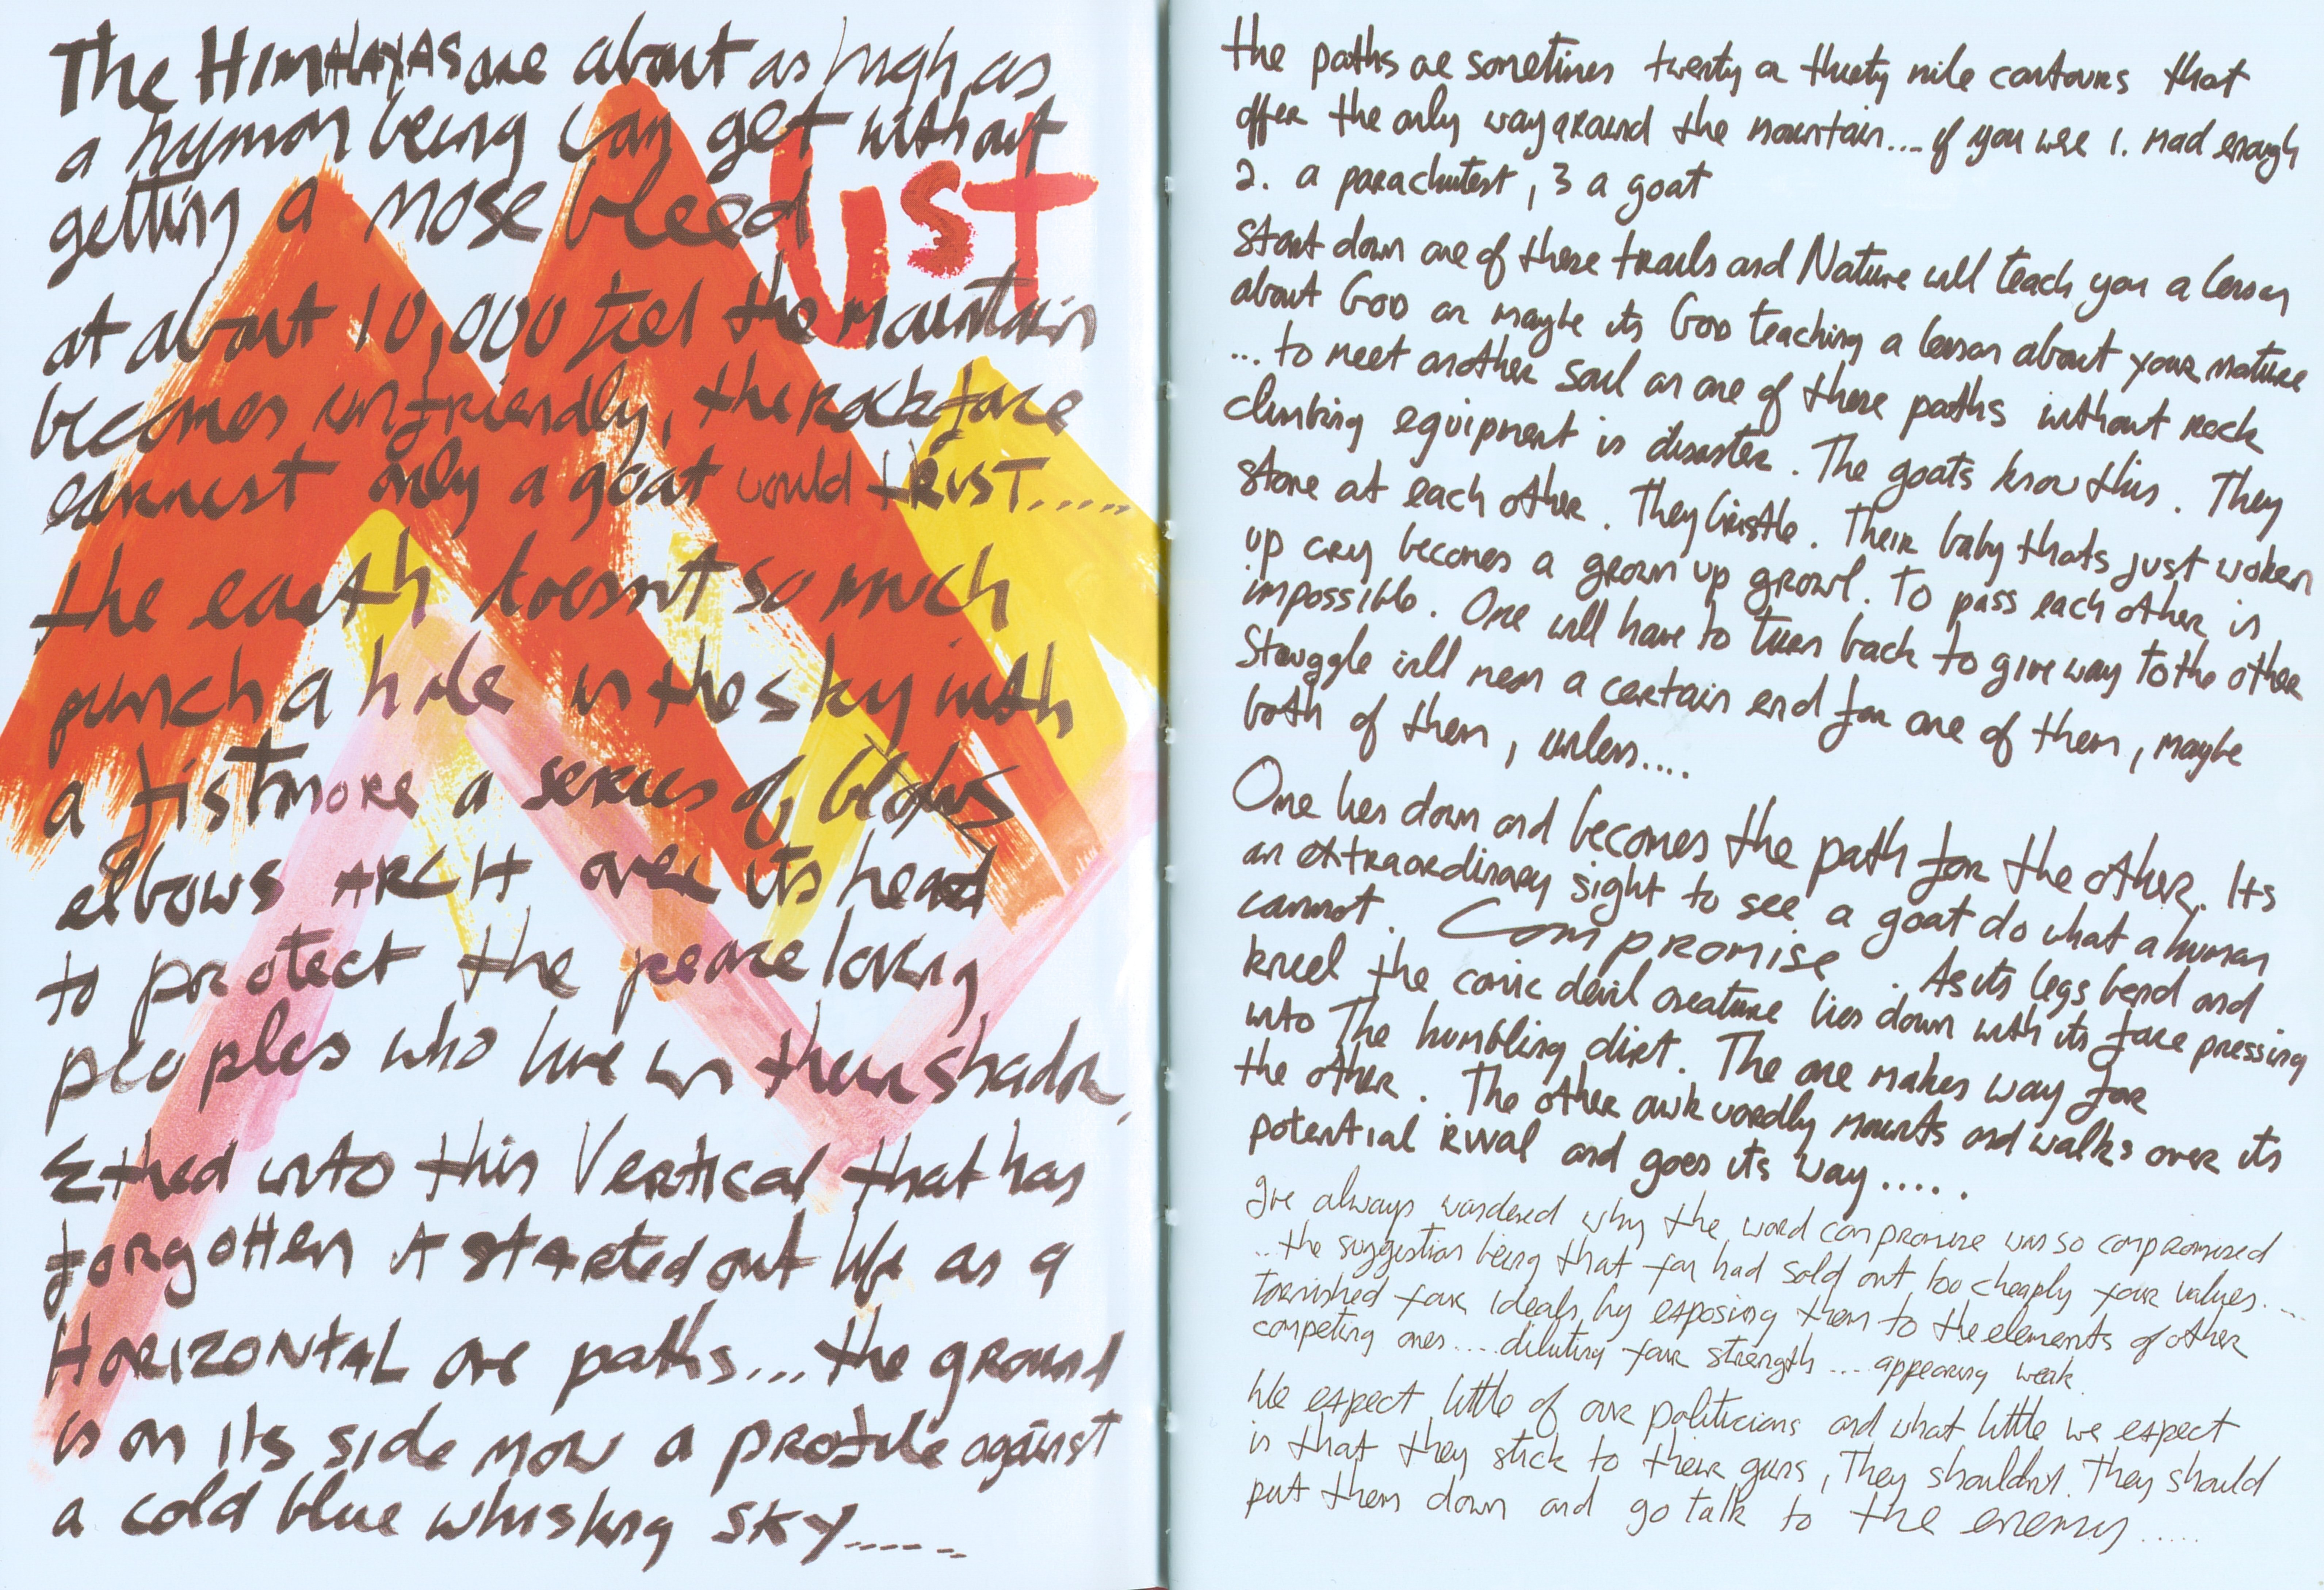 The HIMALAYAS are about as high as
a human being can get without
getting a nose bleed
UST
at about 10,000 feet the mountain
becomes unfriendly, the rock face
earnest only a goat would TRUST.....
the earth doesnt so much
punch a hole in the sky with
a fist more a series of blows
elbows ARCH over its head
to protect the peace loving
peoples who live in their shadow,
Ethed into this Vertical that has
forgotten it started out life as a
HORIZONTAL are paths... the ground
is on its side now a profile against
a cold blue whisking SKY.....
the paths are sometimes twenty or thirty mile contours that
offer the only way around the mountain.... if you were 1. mad enough
2. a parachutest, 3 a goat
Start down one of these trails and Nature will teach you a lesson
about GOD or maybe its GOD teaching a lesson about your nature
... to meet another soul on one of these paths without rock
climbing equipment is disaster. The goats know this. They
stare at each other. They bristle. Their baby thats just woken
up cry becomes a grown up growl. To pass each other is
impossible. One will have to turn back to give way to the other
Struggle will mean a certain end for one of them, maybe
both of them, unless....
One lies down and becomes the path for the other. Its
an extraordinary sight to see a goat do what a human
cannot. Compromise. As its legs bend and
kneel the comic devil creature lies down with its face pressing
into The humbling dirt. The one makes way for
the other. The other awkwardly mounts and walks over its
potential rival and goes its way.....
Ive always wondered why the word compromise was so compromised
...the suggestion being that you had sold out too cheaply your values....
tarnished your ideals, by exposing them to the elements of other
competing ones....diluting your strength....appearing weak.
We expect little of our politicians and what little we expect
is that they stick to their guns, They shouldnt. They should
put them down and go talk to the enemy.....